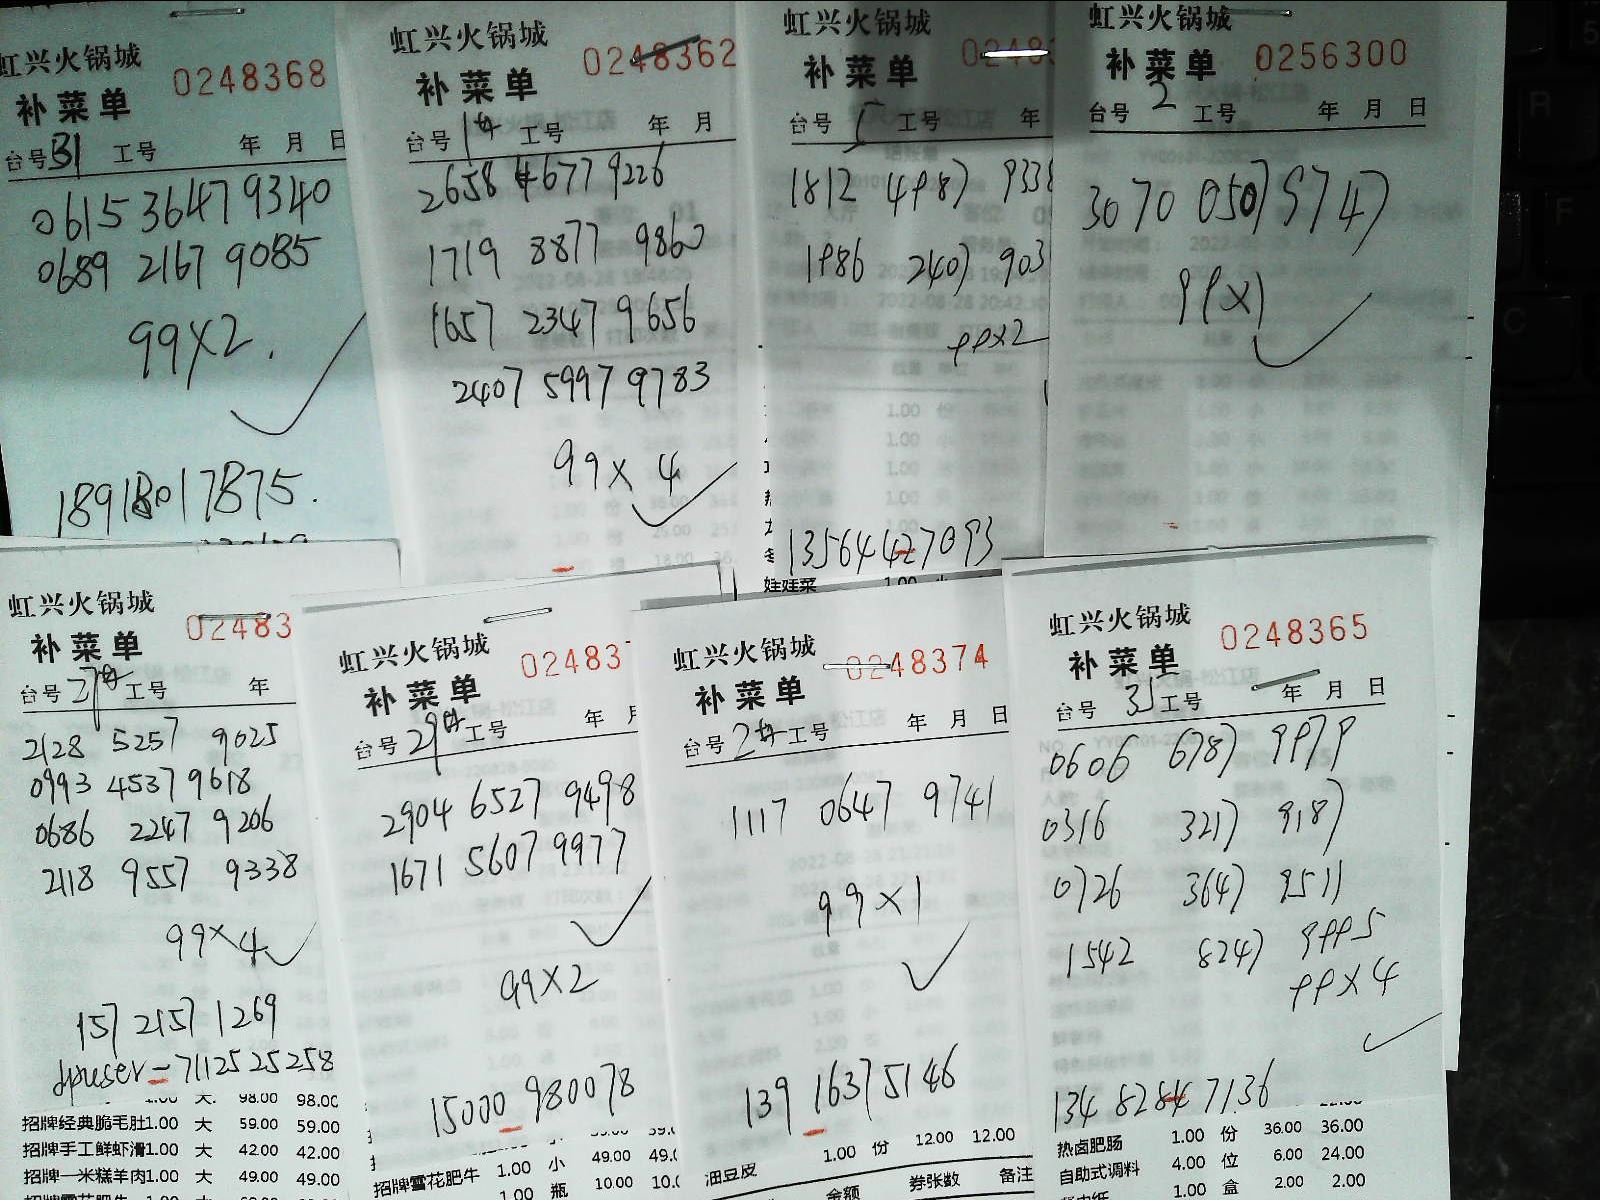 虹兴火锅城
补菜单 0248368
台号31 工号 年 月 日
0615 3647 9340
0689 2167 9085
99×2.
18918017875.
虹兴火锅城
补菜单 0248362
台号 工号 年 月
2658 4677 9226
1719 8877 9860
1657 2347 9656
2407 5997 9783
99×4
虹兴火锅城
补菜单
台号5 工号 年
1812 4987 9338
1986 2407 903
99×2
13564427093
娃娃菜 1.00 小
虹兴火锅城
补菜单 0256300
台号2 工号 年 月 日
3070 0507 9747
99×1
虹兴火锅城
补菜单 02483
台号 工号 年
2128 5257 9025
0993 4537 9618
0686 2247 9206
2118 9557 9338
99×4
157 2157 1269
dpuser-7112525258
1.00 大. 98.00 98.00
招牌经典脆毛肚1.00 大 59.00 59.00
招牌手工鲜虾滑1.00 大 42.00 42.00
招牌一米糕羊肉1.00 大 49.00 49.00
虹兴火锅城
补菜单 02483
台号29 工号 年 月
2904 6527 9498
1671 5607 9977
99×2
15000980078
招牌雪花肥牛 1.00 小 49.00 49.0
1.00 瓶 10.00 10.0
虹兴火锅城
补菜单 0248374
台号2 工号 年 月 日
1117 0647 9741
99×1
139 1637 5146
油豆皮 1.00 份 12.00 12.00
金额 券张数 备注
虹兴火锅城
补菜单 0248365
台号31 工号 年 月 日
0606 6787 9979
0316 3217 9187
0726 3647 9511
1542 8247 9995
99×4
134 8284 7136
热卤肥肠 1.00 份 36.00 36.00
自助式调料 4.00 位 6.00 24.00
1.00 盒 2.00 2.00